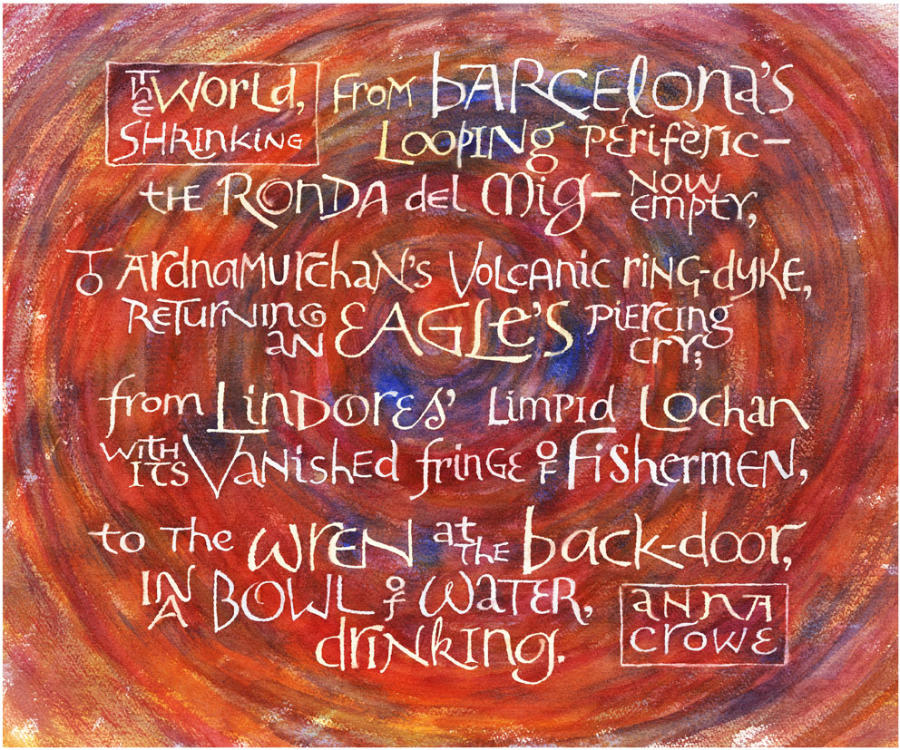 The World, From Barcelona's
Shrinking Looping Periferic—
the Ronda del Mig— now empty,
To Ardnamurchan's Volcanic ring-dyke,
Returning an Eagle's piercing cry;
from Lindores' Limpid Lochan
with its Vanished fringe of Fishermen,
to The wren at the back-door,
In a Bowl of water,
drinking.
anna crowe